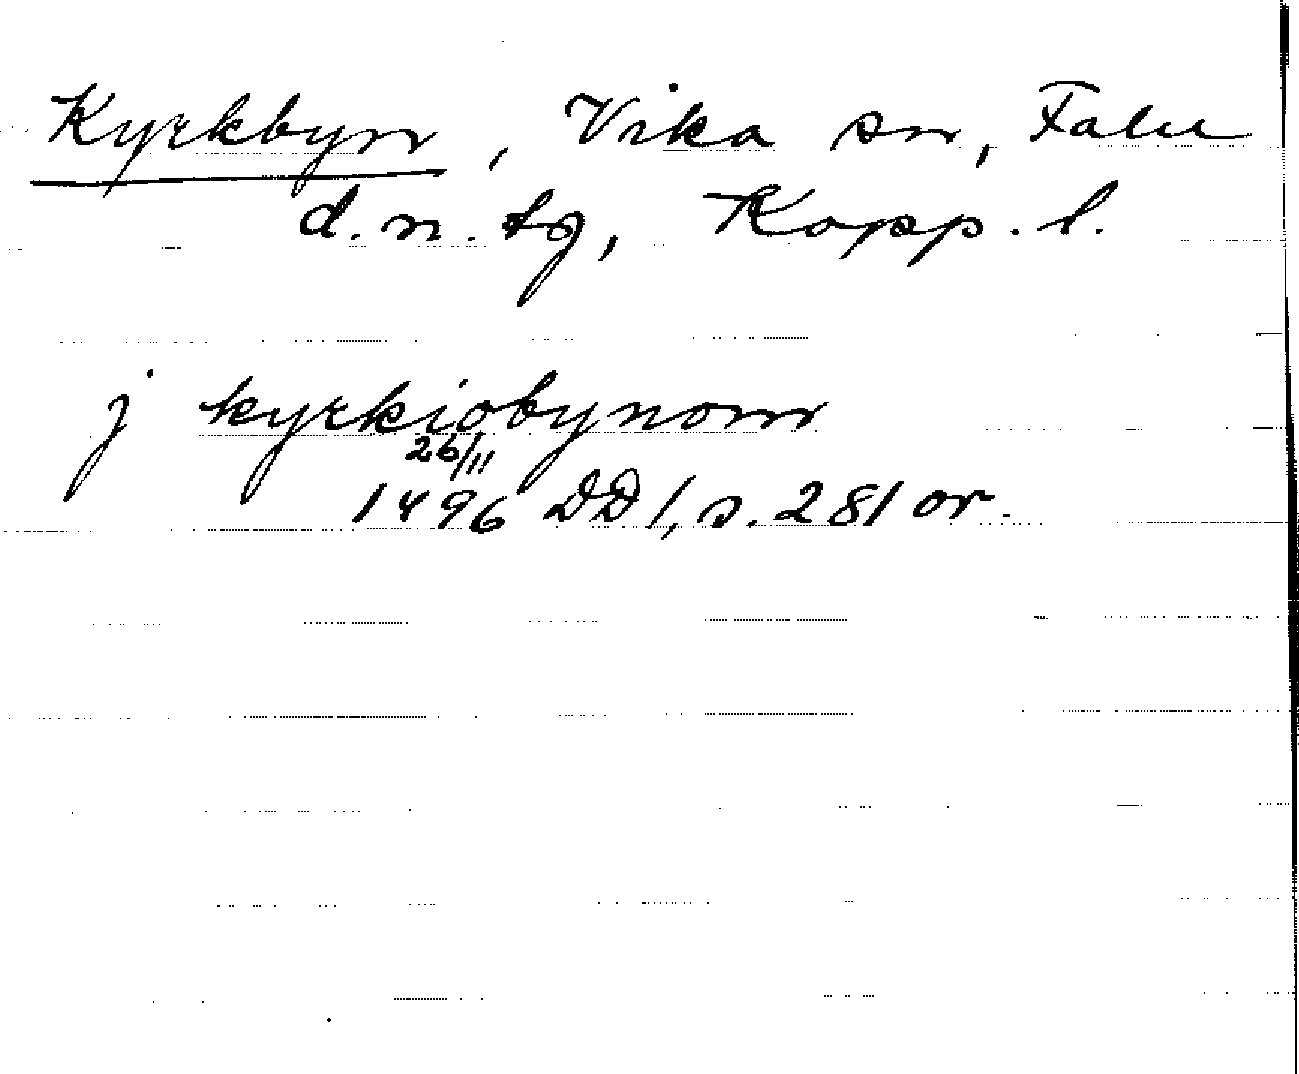 Kyrkbyn, Vika sn, Falu
d.n. tg, Kopp. l.
j kyrkiobynom
26/11
1496 DD 1, s. 281 or.